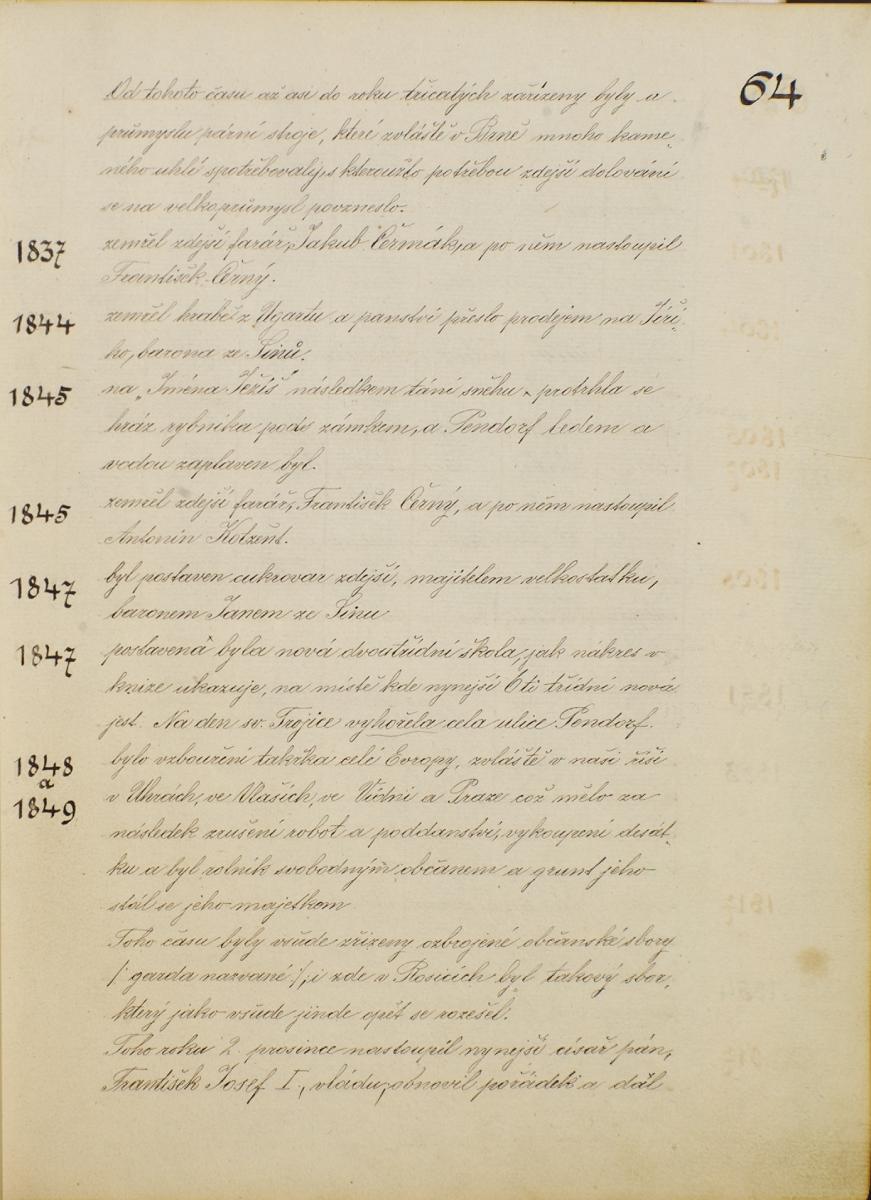 64
Od tohoto času až asi do roku třicatých zařízeny byly u
průmyslu párni stroje, které zvláště v Brně mnoho kame-
ného uhlí spotřebovaly, s kteroužto potřebou zdejší dolování
se na velkoprůmysl povzneslo.
1837 zemřel zdejší farář, Jakub Čermák, a po něm nastoupil
František Černý.
1844 zemřel hrabě z Ugartu a panství přešlo prodejem na Jiři-
ho, barona ze Sinů.
1845 na „Jména Ježíš" následkem tání sněhu protrhla se
hráz rybníka pode zámkem, a Pendorf ledem a
vodou zaplaven byl.
1845 zemřel zdejší farář, František Černý, a po něm nastoupil
Antonín Kotzent.
1847 byl postaven cukrovar zdejší, majitelem velkostatku,
baronem Janem ze Sinu
1847 postavená byla nová dvoutřídní škola, jak nákres v
knize ukazuje, na místě kde nynější 6ti třídní nová
jest. Na den sv. Trojice vyhořela cela ulice Pendorf.
1848 bylo vzbouření takřka celé Evropy, zvláště v naši říši
a
1849 v Uhrách, ve Vlaších, ve Vídni a Praze což mělo za
následek zrušení robot a poddanství, vykoupení desát-
ku a byl rolník svobodným občanem a grunt jeho
stál se jeho majetkem
Toho času byly všude zřízeny ozbrojené občanské sbory
/: garda nazvané :/, i zde v Rosicích byl takový sbor,
který jako všude jinde opět se rozešel.
Toho roku 2. prosince nastoupil nynější císař pán,
František Josef I., vládu, obnovil pořádek a dál